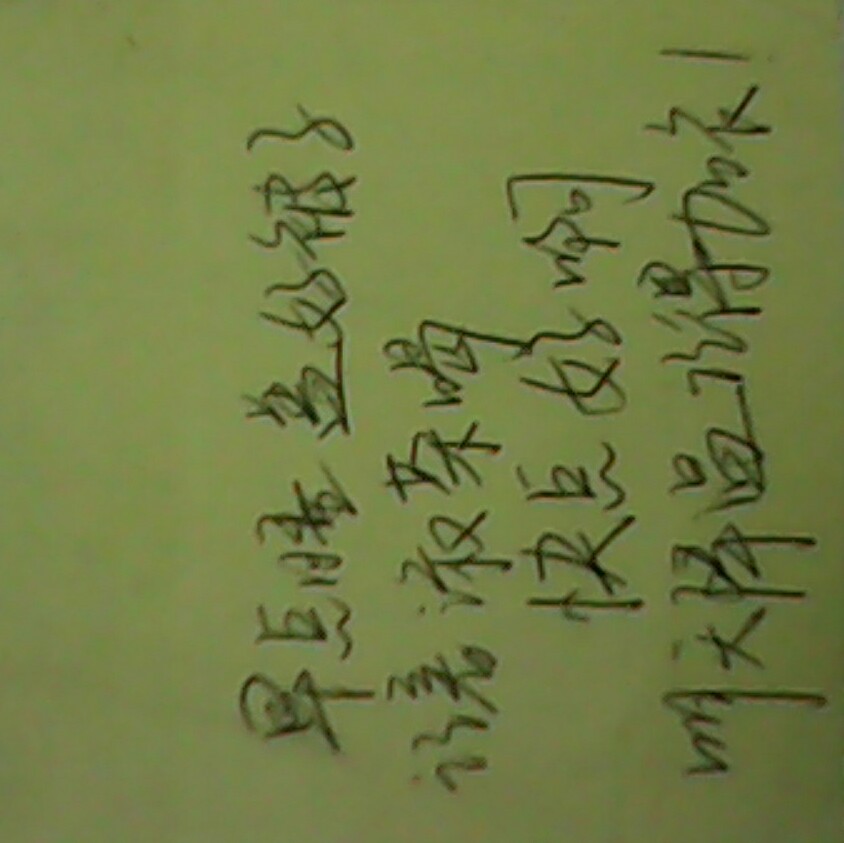 早点睡 盖好被子
记着 茶喝
快点好啊
明天降温记得加衣!